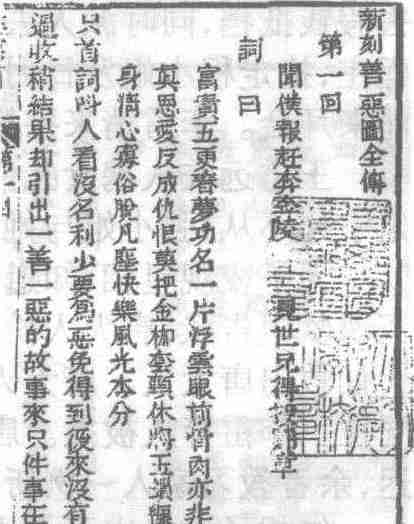 新刻善惡圖全傳
第一回
聞侯報赶奔金陵 見世兄得
詞曰
富貴五更春夢功名一片浮雲眼前骨肉亦非
眞恩愛反成仇恨莫把金枷套頸休將玉鎖纏
身清心寡俗脫凡塵快樂風光本分
只首詞叫人看沒名利少要爲惡免得到後來沒有
過收稍結果却引出一善一惡的故事來只件事在